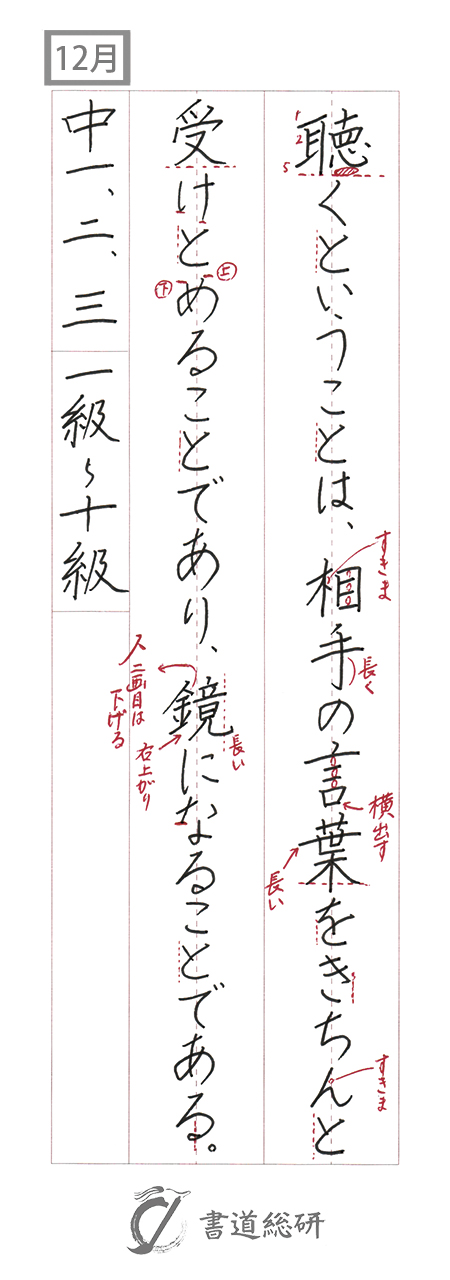 12月
聴くということは、相手の言葉をきちんと
受けとめることであり、鏡になることである。
中一、二、三 一級〜十級
1
2
5
すきま
長く
横出す
長い
すきま
上
下
長い
右上がり
二画目は
下げる
書道総研